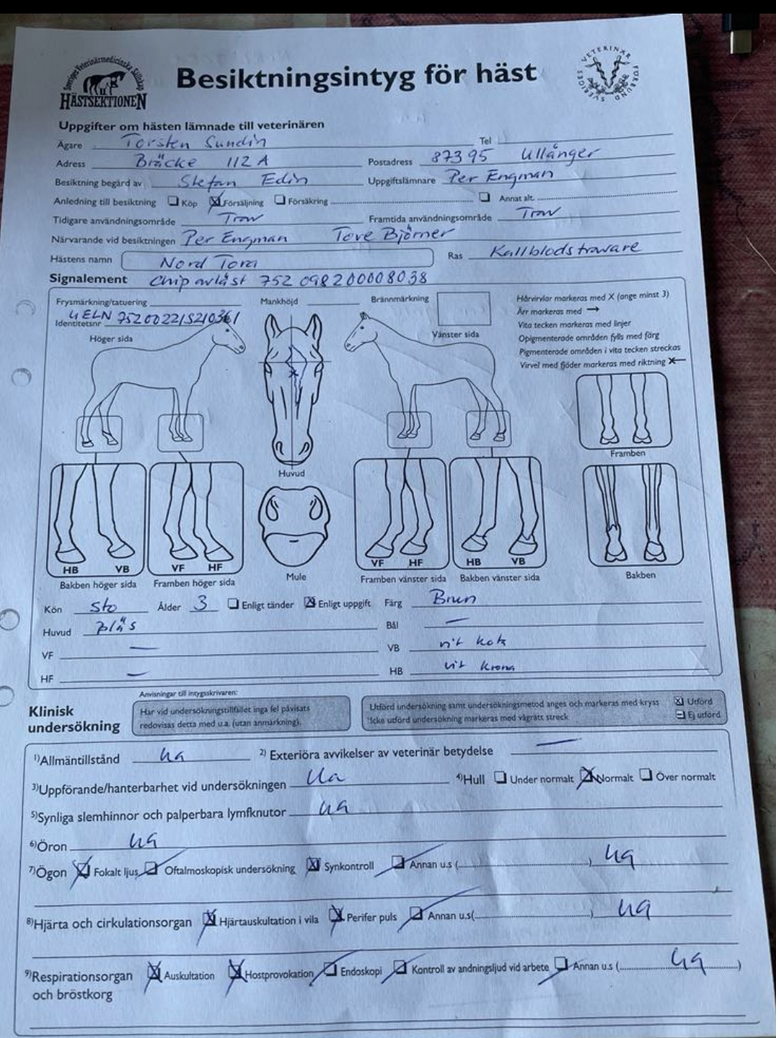 Sveriges Veterinärmedicinska Sällskap
HÄSTSEKTIONEN
Besiktningsintyg för häst
SVERIGES VETERINÄRFÖRBUND
Uppgifter om hästen lämnade till veterinären
Ägare Torsten Sundin Tel
Adress Bräcke 112 A Postadress 87395 Ullånger
Besiktning begärd av Stefan Edin Uppgiftslämnare Per Engman
Anledning till besiktning Köp Försäljning Försäkring Annat alt.
Tidigare användningsområde Trav Framtida användningsområde Trav
Närvarande vid besiktningen Per Engman Tove Björner
Hästens namn Nord Tora Ras Kallblodstravare
Signalement Chip avläst 752 098200008038
Frysmärkning/tatuering Mankhöjd Brännmärkning
UELN 752002215210361
Identitetsnr
Höger sida Vänster sida
Hårvirvlar markeras med X (ange minst 3)
Ärr markeras med →
Vita tecken markeras med linjer
Opigmenterade områden fylls med färg
Pigmenterade områden i vita tecken streckas
Virvel med fjäder markeras med riktning X←
Huvud
Framben
HB VB VF HF VF HF HB VB
Bakben höger sida Framben höger sida Mule Framben vänster sida Bakben vänster sida Bakben
Kön Sto Ålder 3 Enligt tänder Enligt uppgift Färg Brun
Huvud bläs Bål —
VF — VB vit kota
HF — HB vit krona
Klinisk undersökning
Anvisningar till intygsskrivaren:
Har vid undersökningstillfället inga fel påvisats
redovisas detta med u.a. (utan anmärkning).
Utförd undersökning samt undersökningsmetod anges och markeras med kryss Utförd
Icke utförd undersökning markeras med vågrätt streck Ej utförd
1)Allmäntillstånd ua 2) Exteriöra avvikelser av veterinär betydelse —
3)Uppförande/hanterbarhet vid undersökningen Ua 4)Hull Under normalt Normalt Över normalt
5)Synliga slemhinnor och palperbara lymfknutor ua
6)Öron ua
7)Ögon Fokalt ljus Oftalmoskopisk undersökning Synkontroll Annan u.s (..........) ua
8)Hjärta och cirkulationsorgan Hjärtauskultation i vila Perifer puls Annan u.s(..........) ua
9)Respirationsorgan och bröstkorg Auskultation Hostprovokation Endoskopi Kontroll av andningsljud vid arbete Annan u.s (.......... ua)